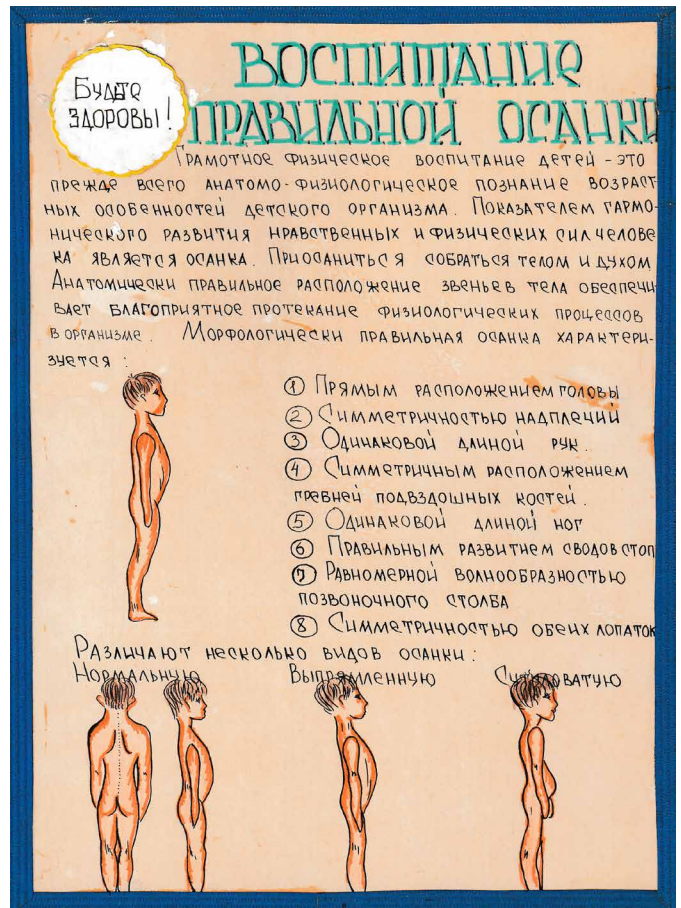 Будьте
здоровы!
ВОСПИТАНИЕ
ПРАВИЛЬНОЙ ОСАНКИ
Грамотное физическое воспитание детей - это
прежде всего анатомо-физиологическое познание возраст
ных особенностей детского организма. Показателем гармо-
нического развития нравственных и физических сил челове
ка является осанка. Приосаниться собраться телом и духом
Анатомически правильное расположение звеньев тела обеспечи
вает благоприятное протекание физиологических процессов
в организме. Морфологически правильная осанка характери-
зуется:
① Прямым расположением головы
② Симметричностью надплечий
③ Одинаковой длиной рук.
④ Симметричным расположением
гревней подвздошных костей.
⑤ Одинаковой длиной ног
⑥ Правильным развитием сводов стоп
⑦ Равномерной волнообразностью
позвоночного столба
⑧ Симметричностью обеих лопаток
Различают несколько видов осанки:
Нормальную Выпрямленную Сутуловатую